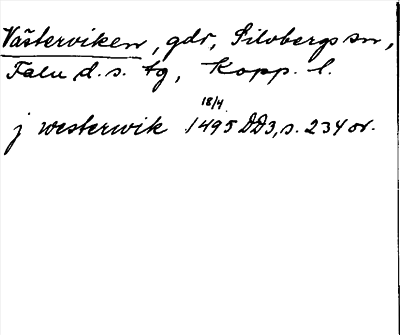 Västerviken, gdr, Silvbergs sn,
Falu d.s. tg, Kopp. l.
18/4
j westerwik 1495 DD3, s. 234 or.